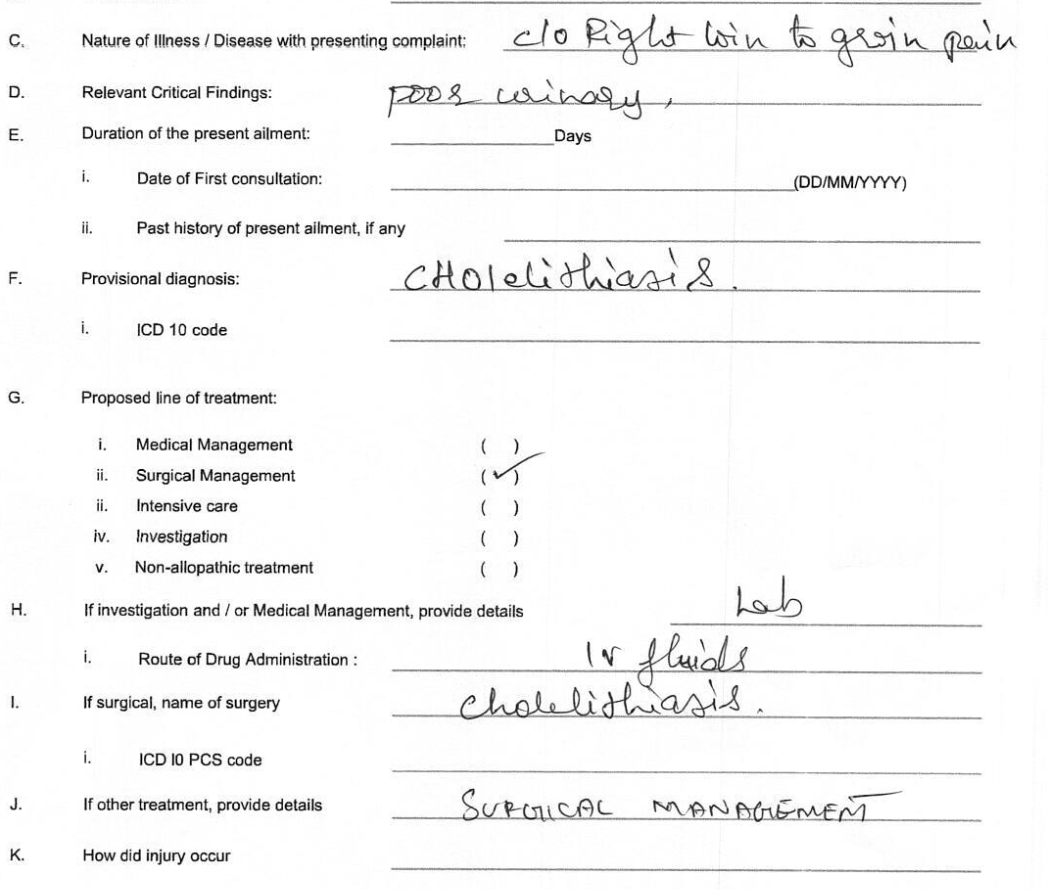 C. Nature of Illness / Disease with presenting complaint: c/o Right loin to groin pain
D. Relevant Critical Findings: poor urinary,
E. Duration of the present ailment: Days
i. Date of First consultation: (DD/MM/YYYY)
ii. Past history of present ailment, if any
F. Provisional diagnosis: CHOlelithiasis.
i. ICD 10 code
G. Proposed line of treatment:
i. Medical Management ( )
ii. Surgical Management (✓)
ii. Intensive care ( )
iv. Investigation ( )
v. Non-allopathic treatment ( )
H. If investigation and / or Medical Management, provide details Lab
i. Route of Drug Administration : IV fluids
I. If surgical, name of surgery Cholelithiasis.
i. ICD I0 PCS code
J. If other treatment, provide details SURGICAL MANAGEMENT
K. How did injury occur